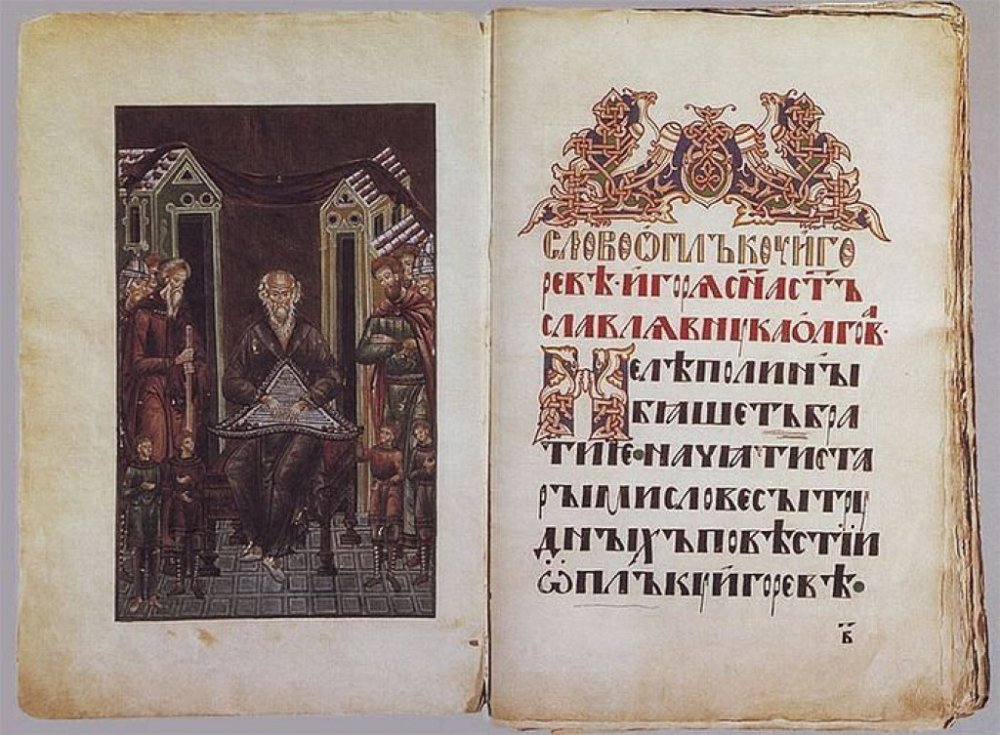 СЛОВОѠПЛЪКꙊИ҆ГО
РЕВѢ·И҆ГОРѦСН҃АСТ҃Ъ
СЛАВЛѦВНꙊКАОЛГОВⷶ·
НЕЛѢПОЛИНЫ
БꙖШЕТЪБРА
ТИѤ•НАЧꙖТИСТА
РЫМИСЛОВЕСЫТРꙊ
ДНЫХЪПОВѢСТЇЙ
ѠПЛЪКꙊИ҆ГОРЕВѢ•
Б